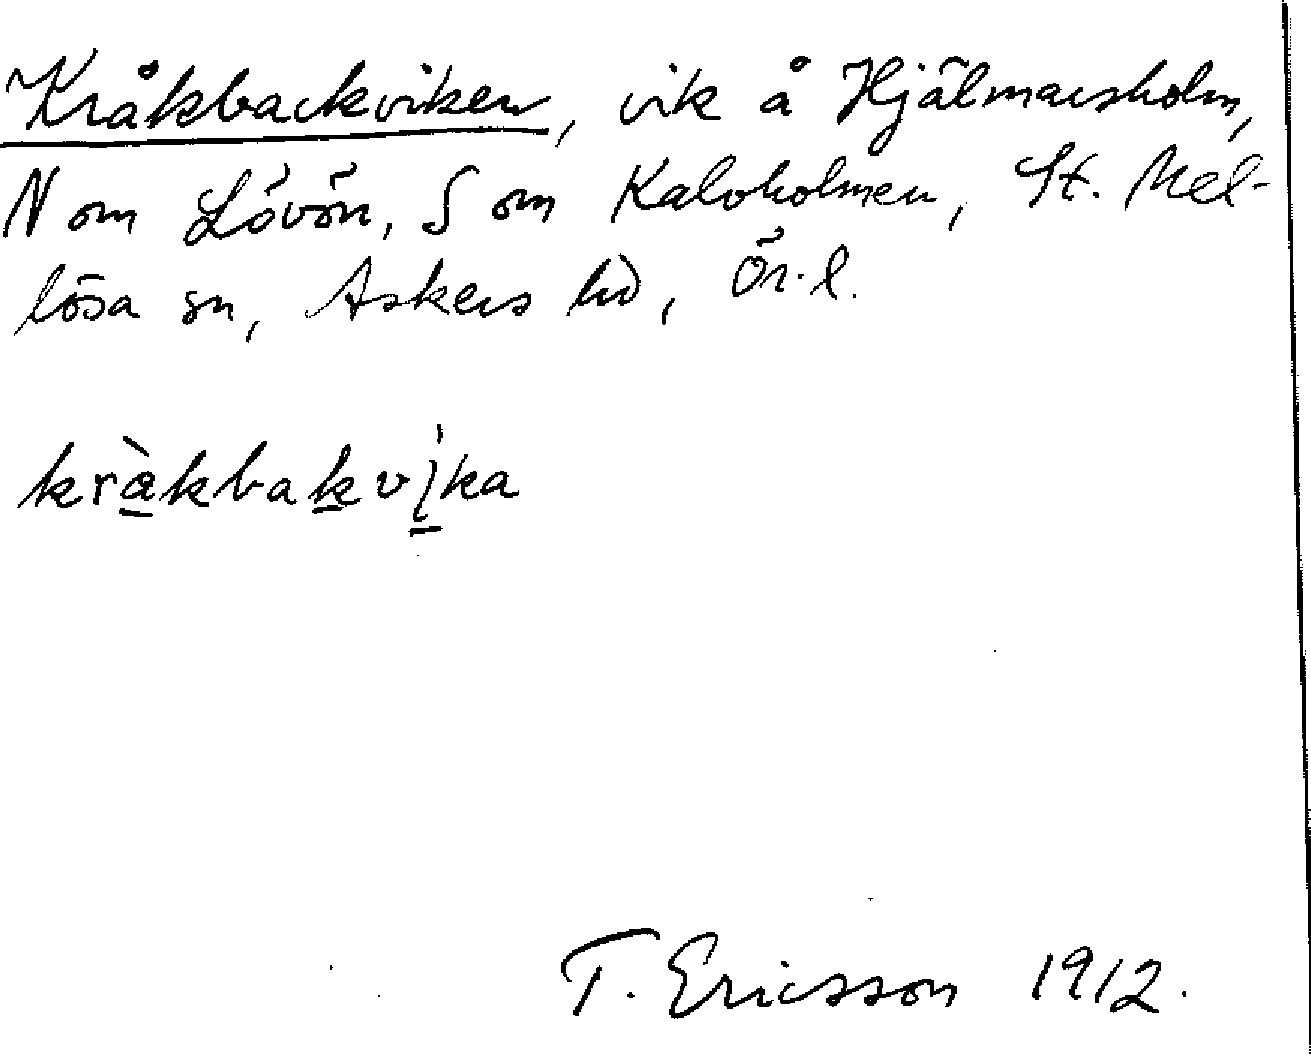 Kråkbackviken, vik å Hjälmarsholm,
N om Lövön, S om Kalvholmen, St. Mel-
lösa sn, Askers hd, Ör. l.
kràkbakvika
T. Ericsson 1912.